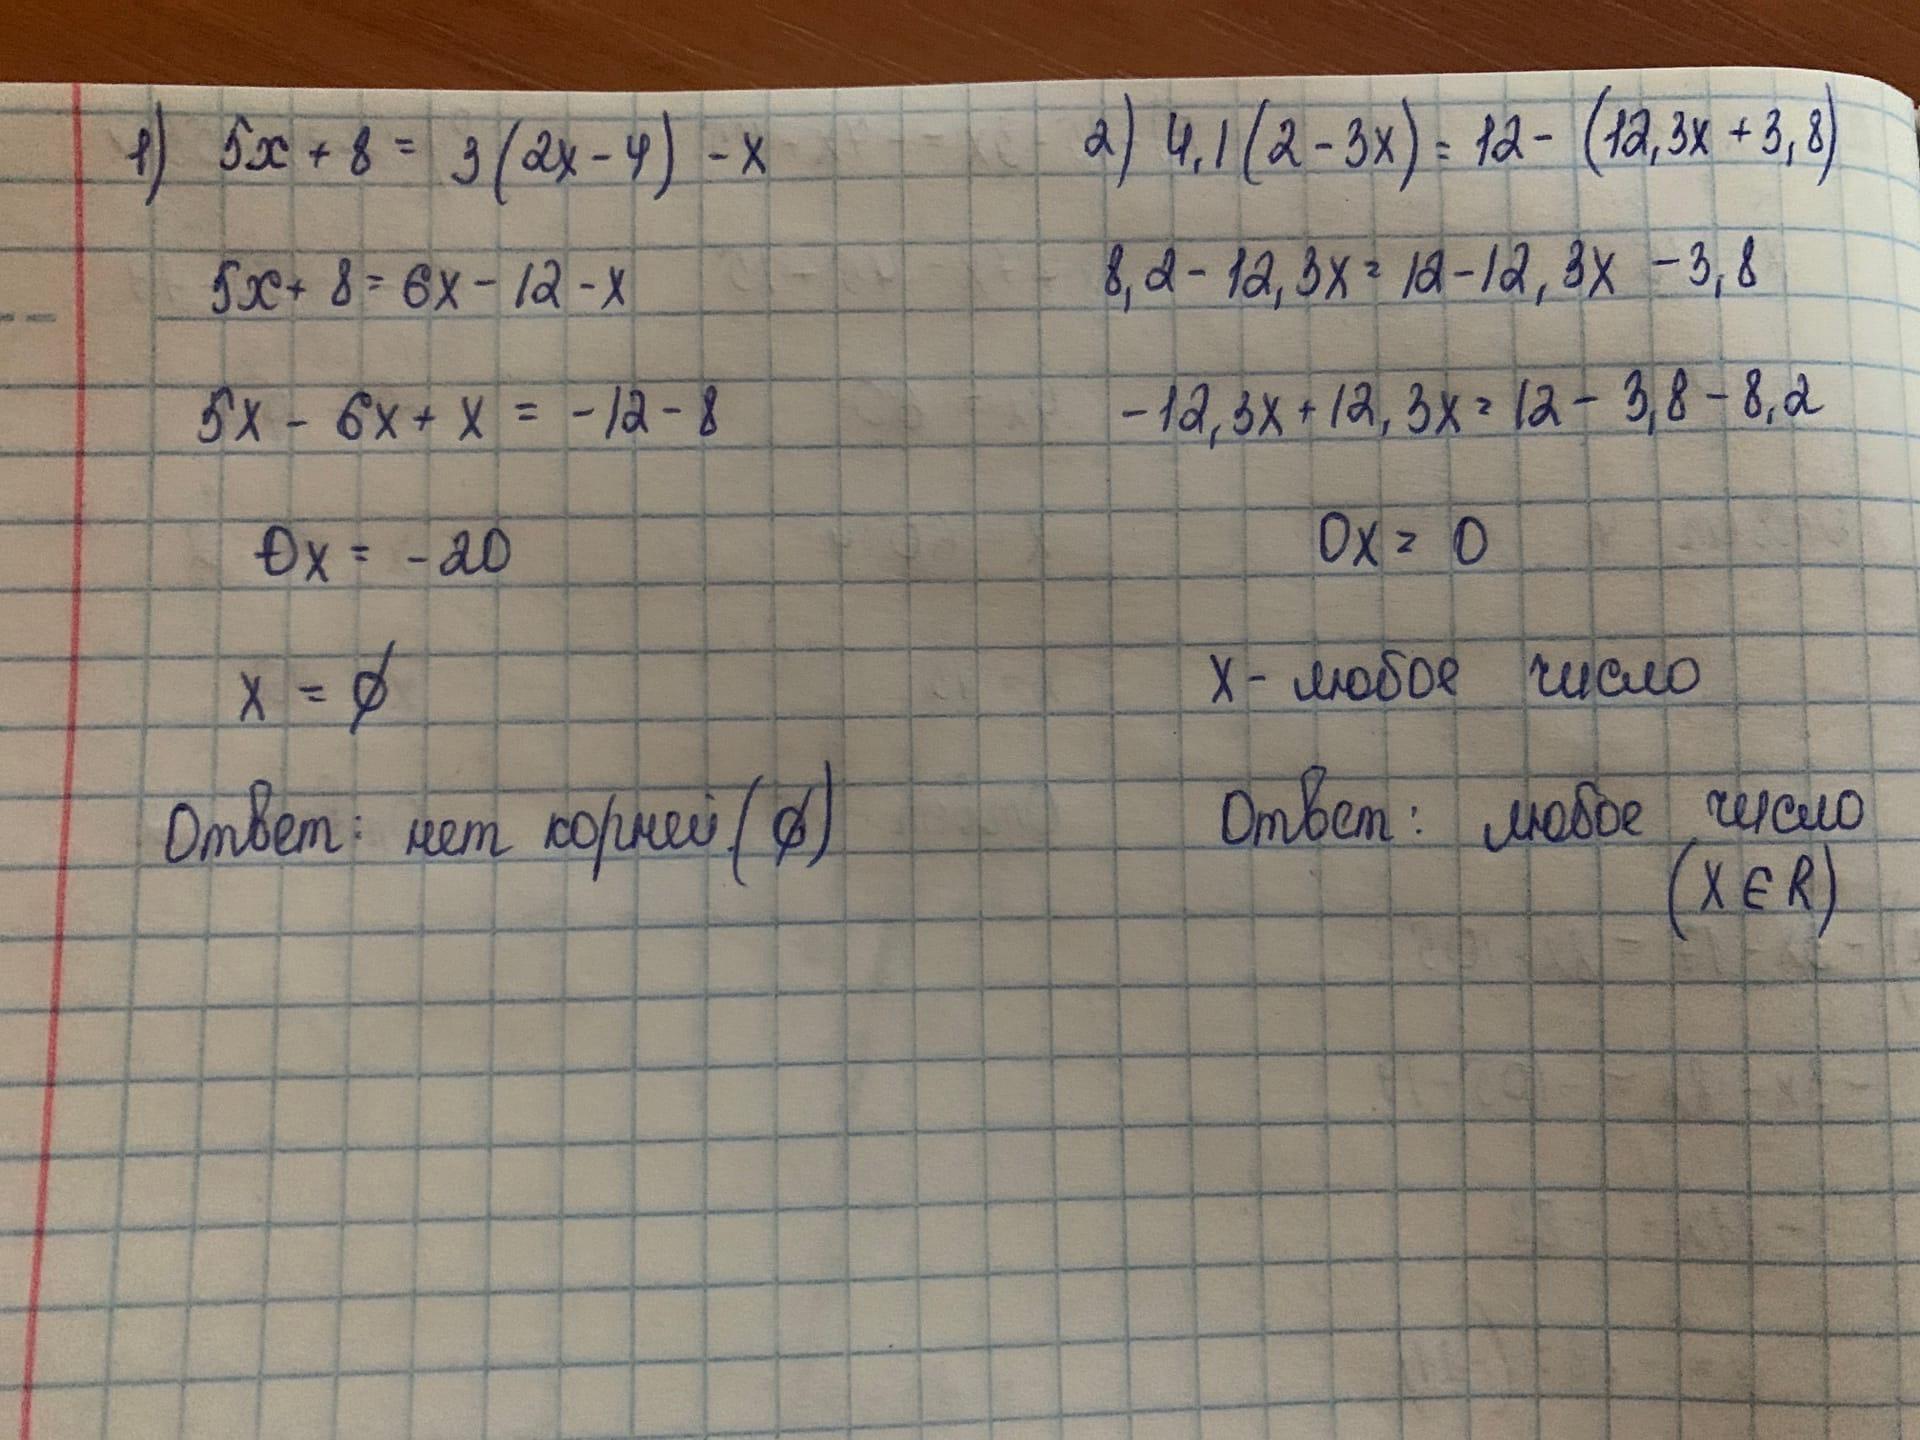 1) 5x + 8 = 3(2x - 4) - x
5x + 8 = 6x - 12 - x
5x - 6x + x = -12 - 8
0x = -20
x = ∅
Ответ: нет корней (∅)
2) 4,1(2 - 3x) = 12 - (12,3x + 3,8)
8,2 - 12,3x = 12 - 12,3x - 3,8
-12,3x + 12,3x = 12 - 3,8 - 8,2
0x = 0
x - любое число
Ответ: любое число
(x ∈ R)